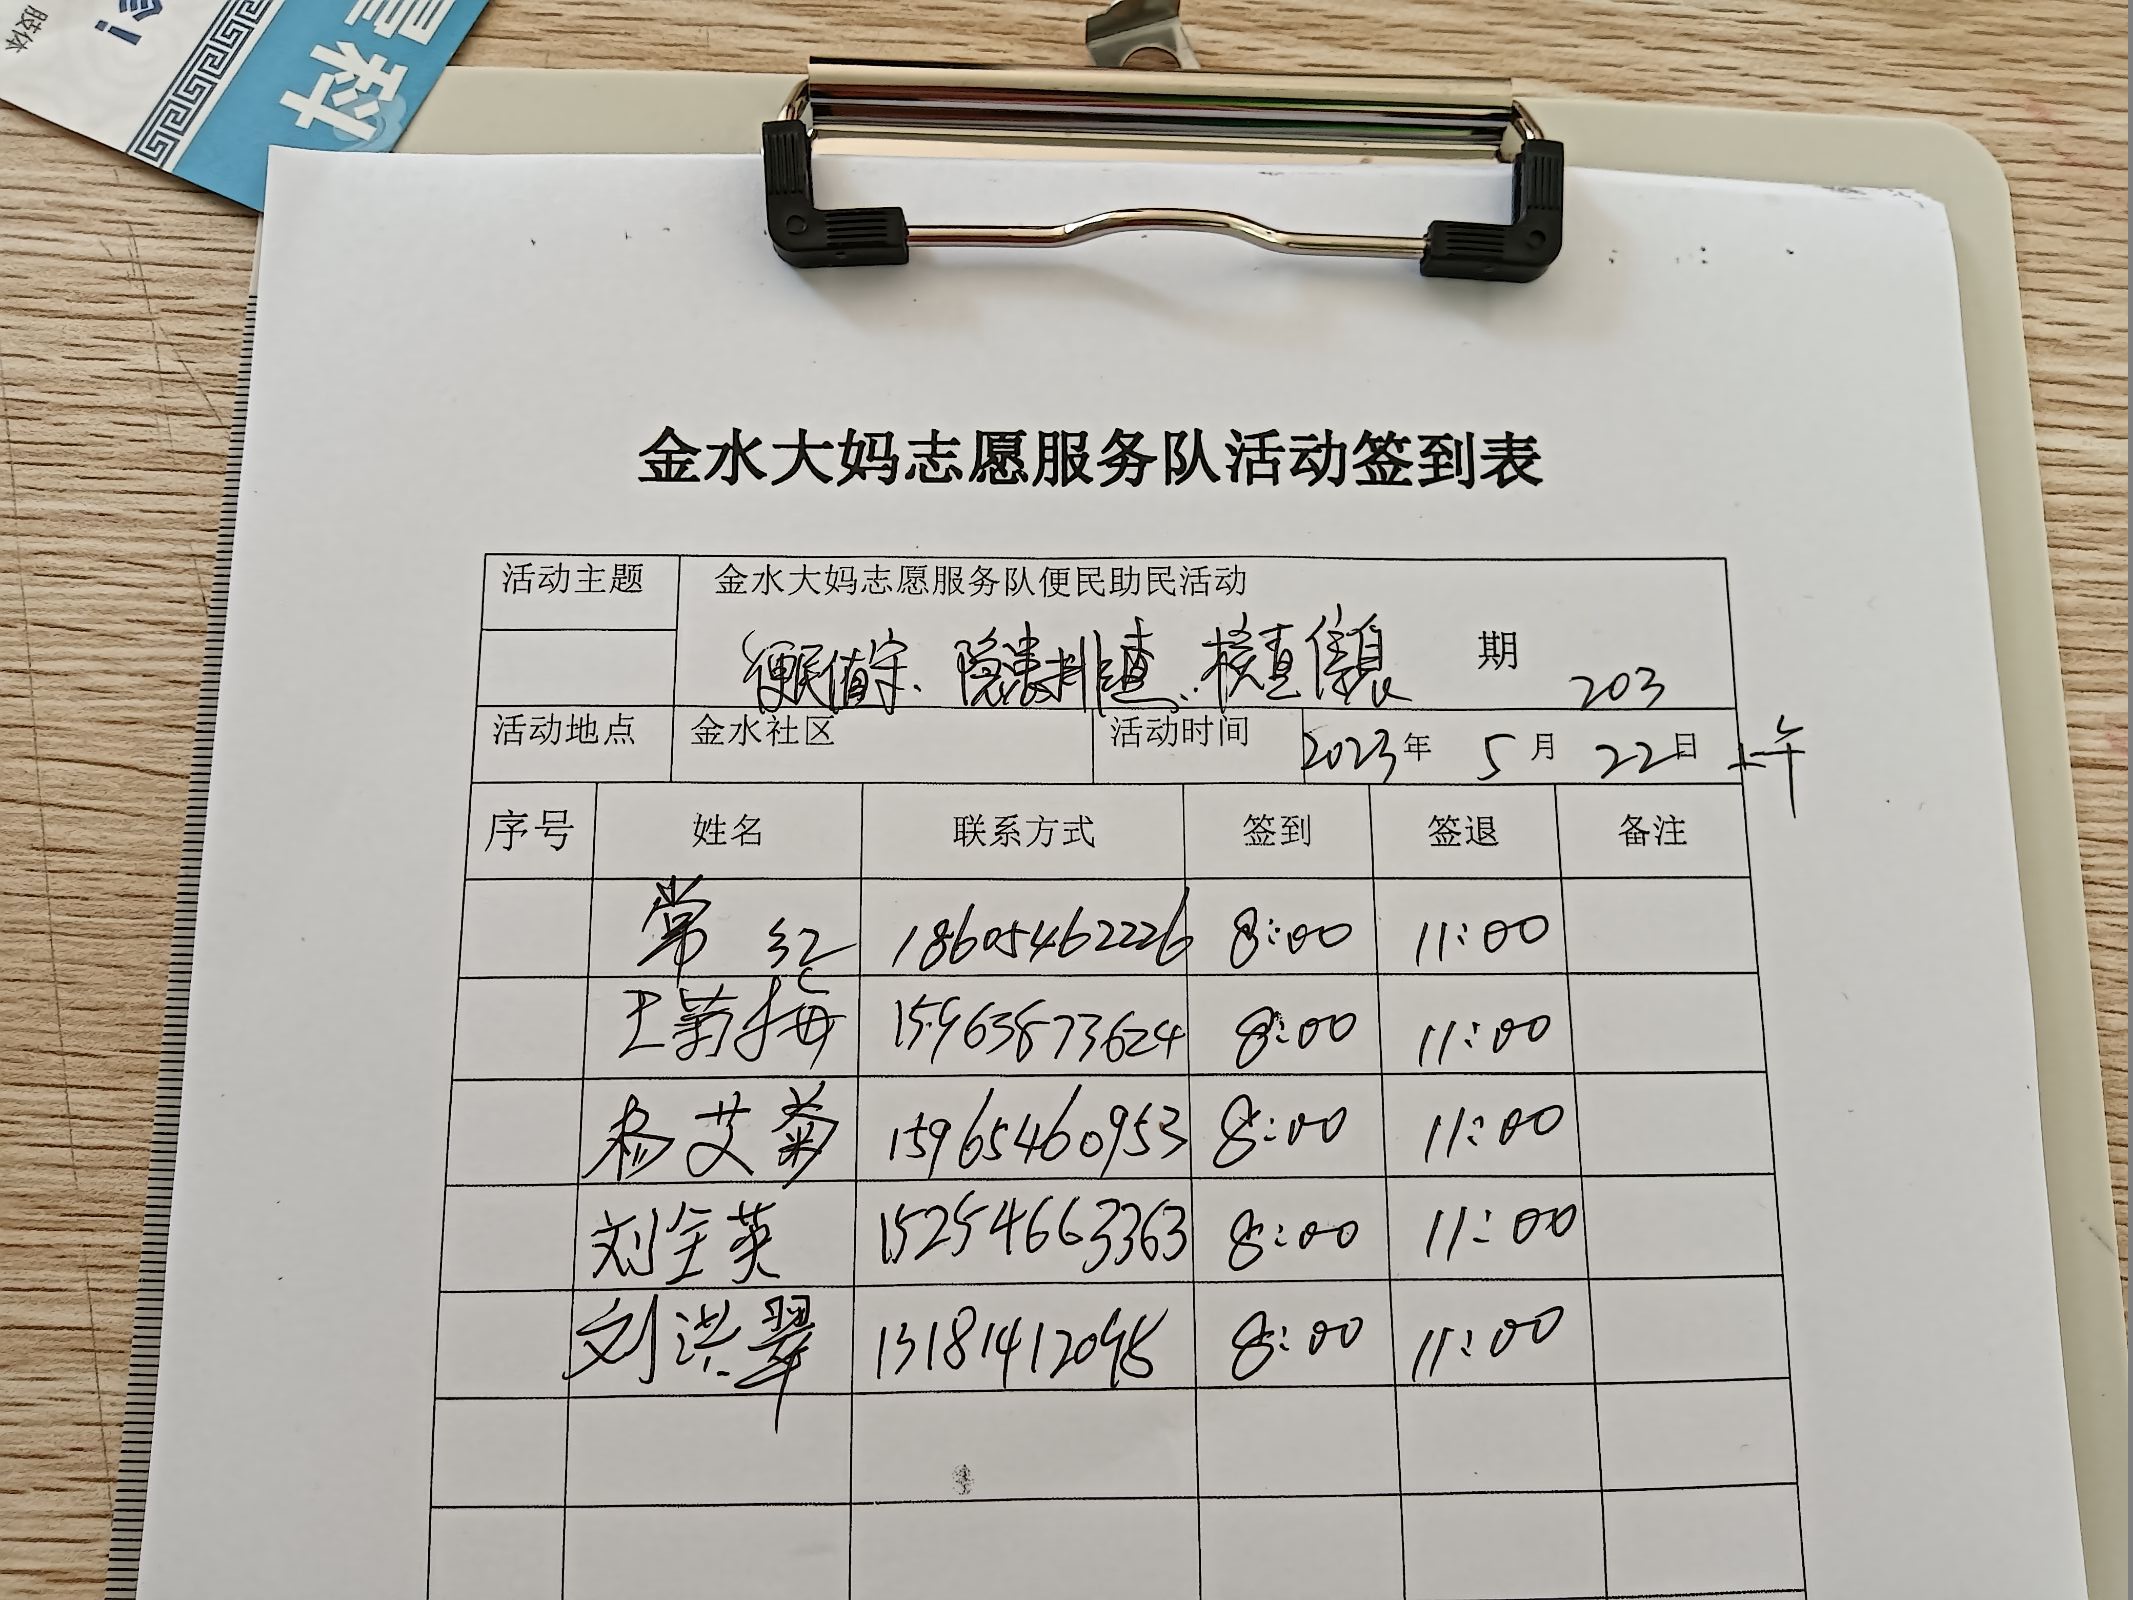 科
金水大妈志愿服务队活动签到表
活动主题 金水大妈志愿服务队便民助民活动
便民值守、隐患排查、核查信息 期 203
活动地点 金水社区 活动时间 2023年 5月 22日 上午
序号 姓名 联系方式 签到 签退 备注
常红 18605462226 8:00 11:00
王菊梅 15963873624 8:00 11:00
杨艾菊 15965460953 8:00 11:00
刘全英 15254663363 8:00 11:00
刘洪翠 13181412098 8:00 11:00